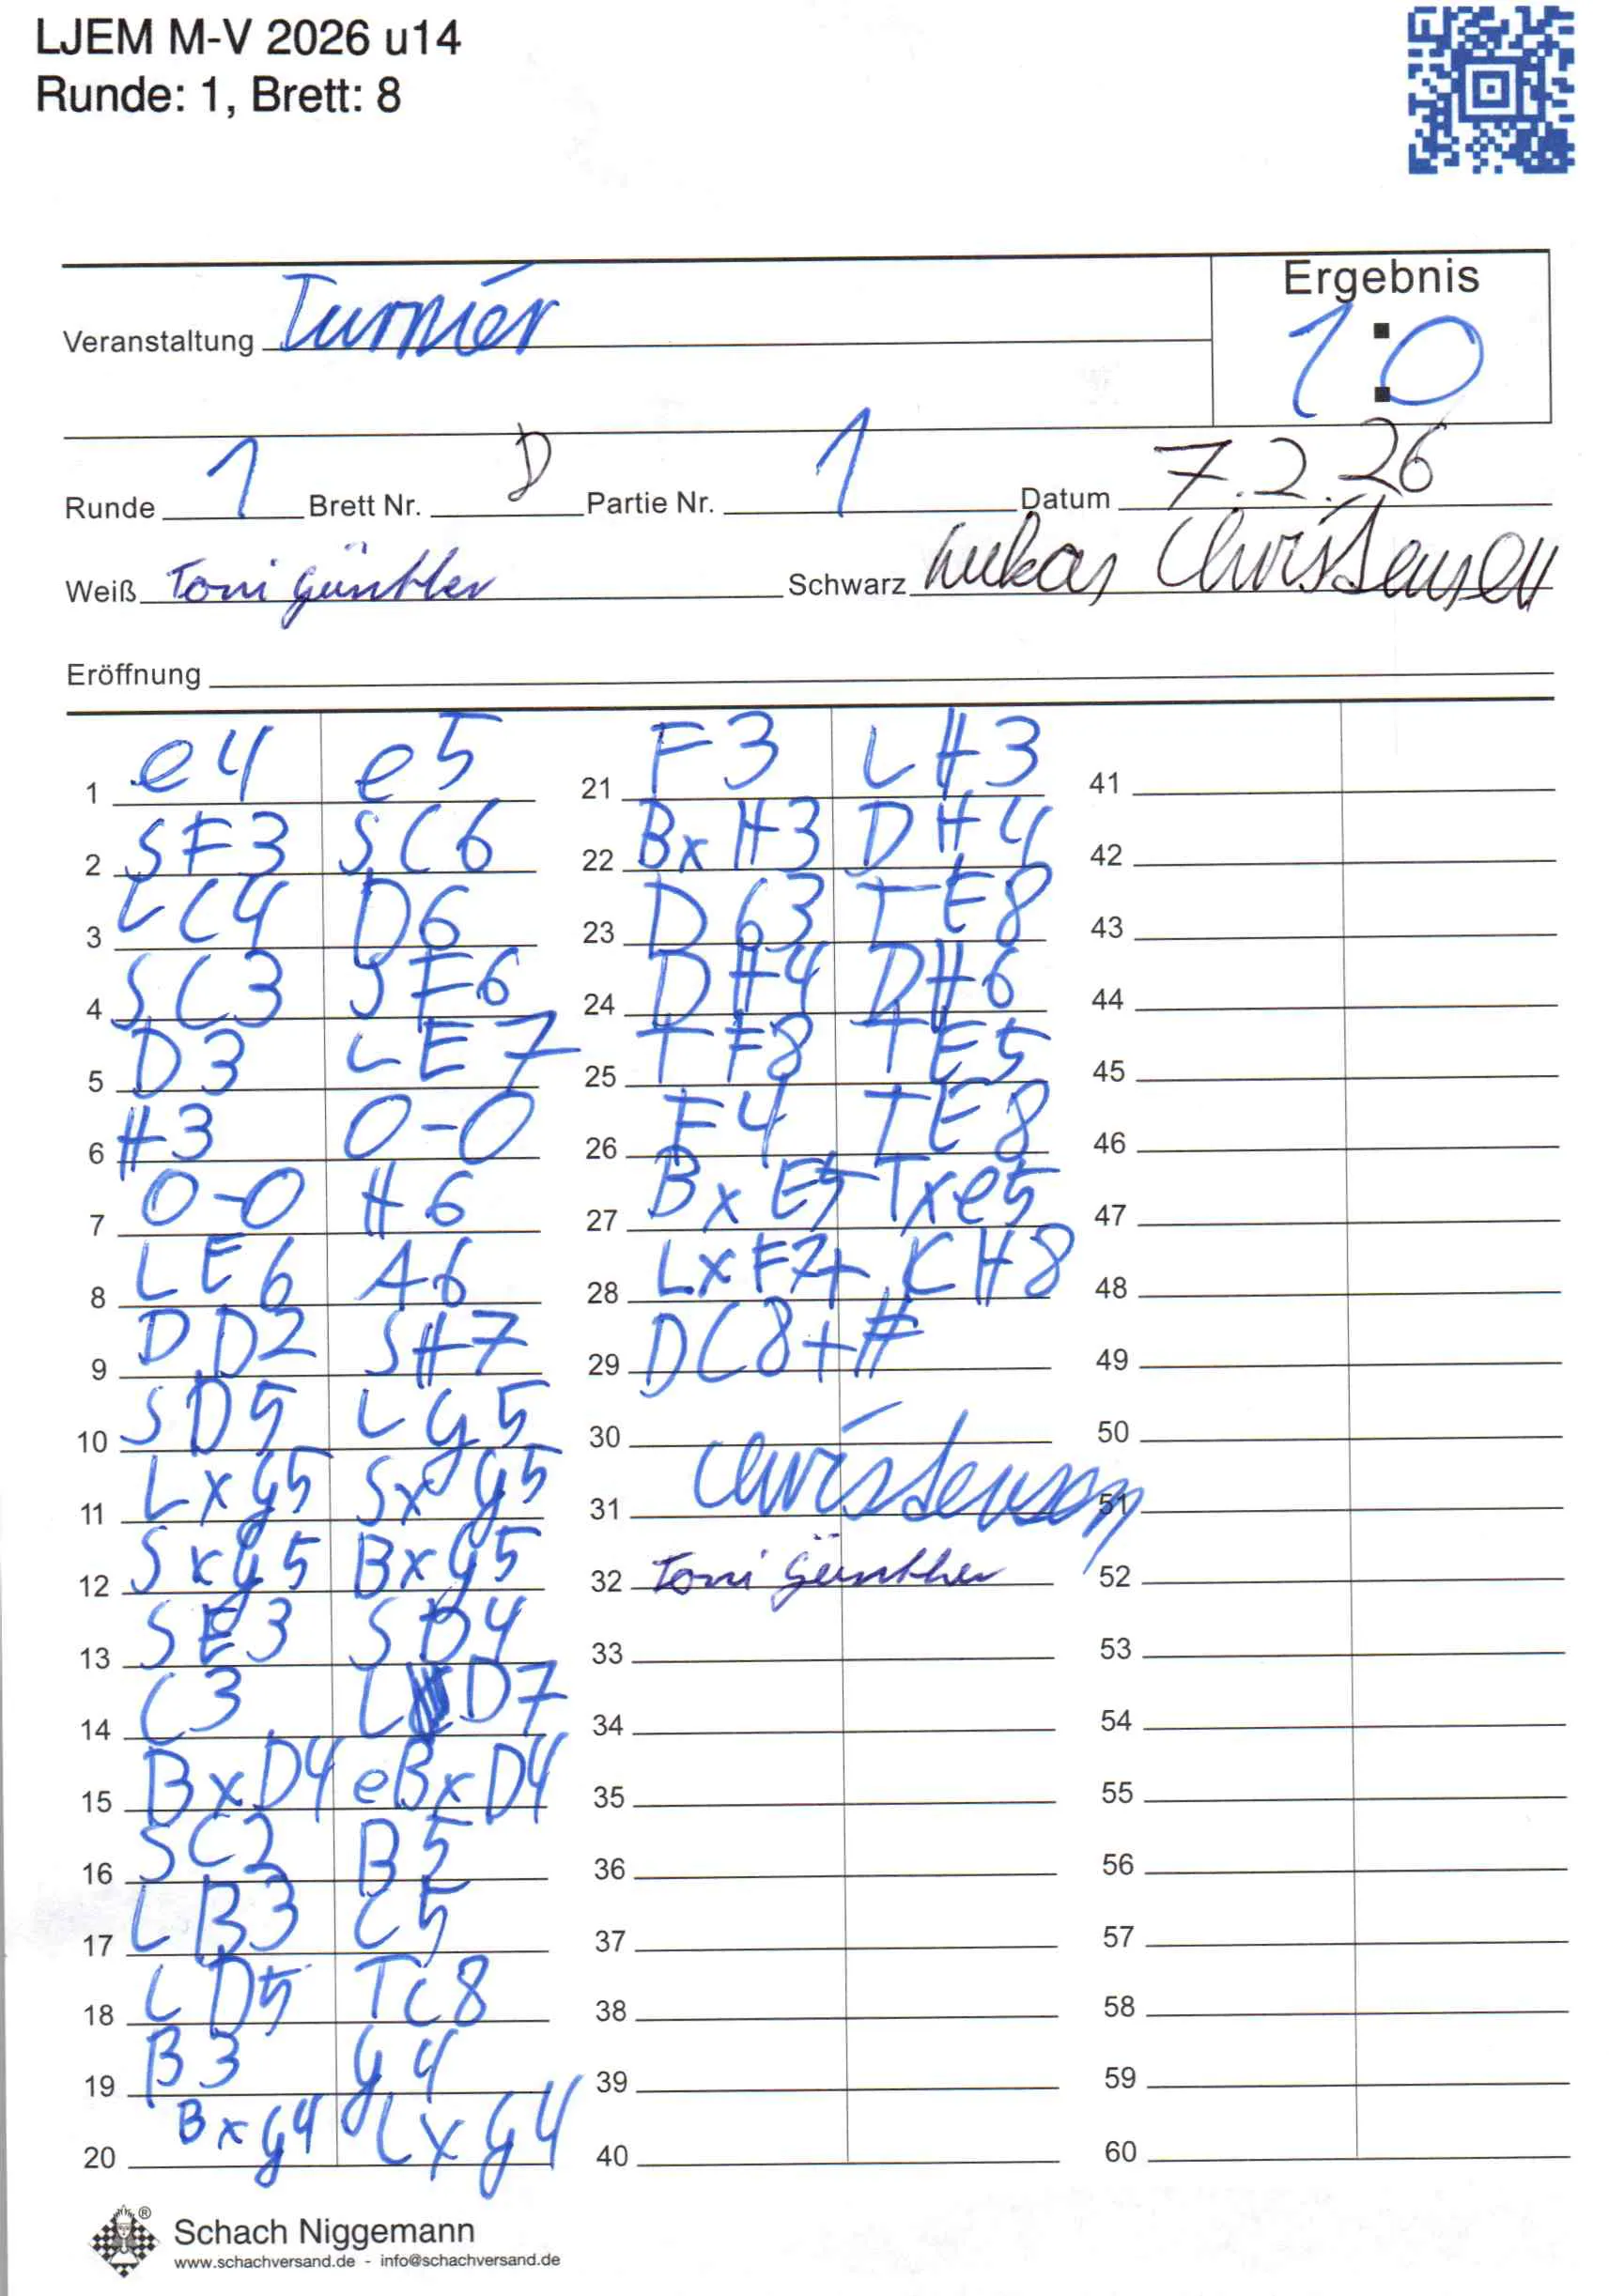 LJEM M-V 2026 u14
Runde: 1, Brett: 8
Ergebnis
1:0
Veranstaltung Turnier
Runde 1 Brett Nr. D Partie Nr. 1 Datum 7.2.26
Weiß Toni Günther Schwarz Lukas Christensen
Eröffnung
1 e4 e5
2 SF3 SC6
3 LC4 D6
4 SC3 SF6
5 D3 LE7
6 H3 0-0
7 0-0 H6
8 LE6 A6
9 DD2 SH7
10 SD5 LG5
11 LxG5 SxG5
12 SxG5 BxG5
13 SE3 SD4
14 C3 LD7
15 BxD4 eBxD4
16 SC2 B5
17 LB3 C5
18 LD5 TC8
19 B3 G4
20 BxG4 LxG4
21 F3 LH3
22 BxH3 DH4
23 D63 TE8
24 DH4 DH6
25 TF8 TE5
26 F4 TE8
27 BxE5 Txe5
28 LxF7+ KH8
29 DC8+#
30
31 Christensen
32 Toni Günther
33
34
35
36
37
38
39
40
41
42
43
44
45
46
47
48
49
50
51
52
53
54
55
56
57
58
59
60
Schach Niggemann
www.schachversand.de - info@schachversand.de